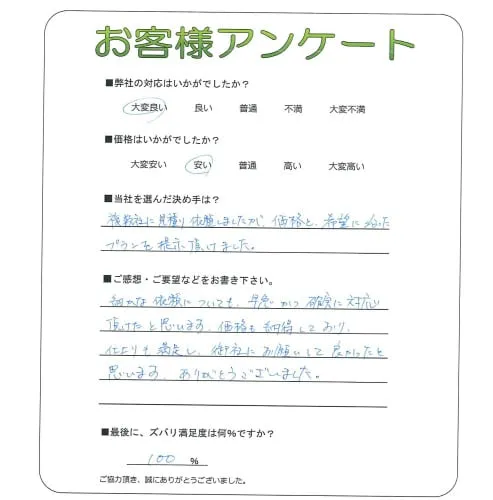 お客様アンケート
■弊社の対応はいかがでしたか？
大変良い 良い 普通 不満 大変不満
■価格はいかがでしたか？
大変安い 安い 普通 高い 大変高い
■当社を選んだ決め手は？
複数社に見積り依頼しましたが、価格と、希望に沿った
プランを提示頂けました。
■ご感想・ご要望などをお書き下さい。
細かな依頼についても、早急かつ確実に対応
頂けたと思います。価格も納得しており、
仕上りも満足し、御社にお願いして良かったと
思います。ありがとうございました。
■最後に、ズバリ満足度は何%ですか？
100 %
ご協力頂き、誠にありがとうございました。